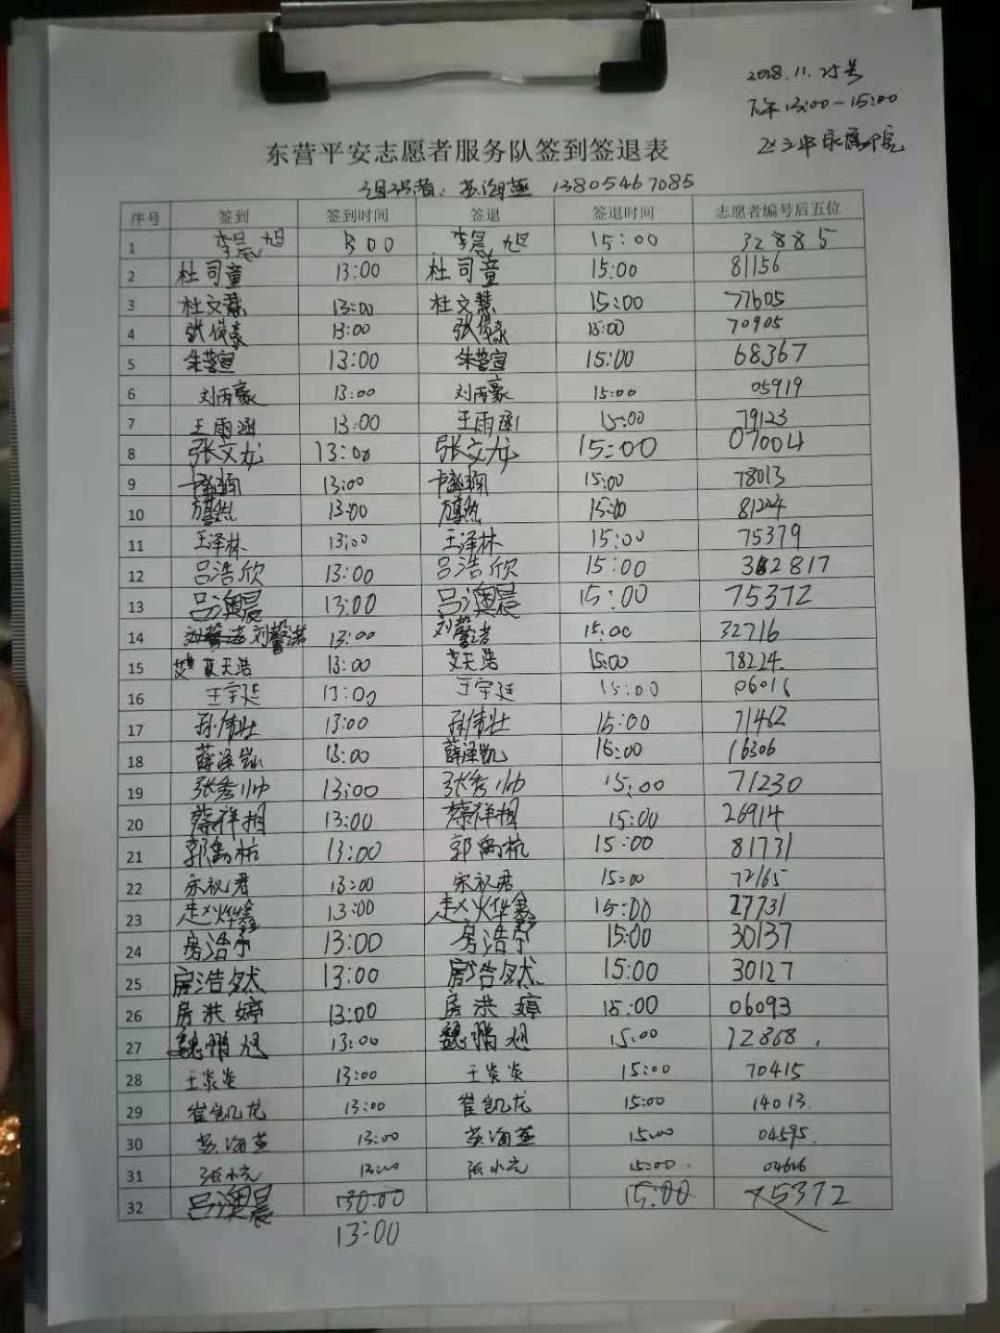 2018.11.25号
下午13:00-15:00
东营平安志愿者服务队签到签退表
13805467085
序号 签到 签到时间 签退 签退时间 志愿者编号后五位
1 李晨旭 李晨旭 15:00 32885
2 杜司童 13:00 杜司童 15:00 81156
3 杜文慧 13:00 杜文慧 15:00 77605
4 13:00 15:00 70905
5 朱莹宣 13:00 朱莹宣 15:00 68367
6 刘丙豪 13:00 刘丙豪 15:00 05919
7 王雨涵 13:00 王雨涵 15:00 79123
8 张文龙 13:00 张文龙 15:00 07004
9 13:00 15:00 78013
10 13:00 15:00
11 王泽林 13:00 王泽林 15:00 75379
12 吕浩欣 13:00 吕浩欣 15:00
13 吕澳晨 13:00 吕澳晨 15:00 75372
14 刘馨诺 13:00 刘馨诺 15:00 32716
15 艾天浩 13:00 艾天浩 15:00 78224
16 王宇廷 13:00 王宇廷 15:00 06016
17 孙伟壮 13:00 孙伟壮 15:00 71462
18 薛泽凯 13:00 薛泽凯 15:00 16306
19 张秀帅 13:00 张秀帅 15:00 71230
20 蔡祥相 13:00 蔡祥相 15:00 26914
21 郭禹杭 13:00 郭禹杭 15:00 81731
22 13:00 15:00 72165
23 赵烨鑫 13:00 赵烨鑫 15:00 27731
24 房浩宁 13:00 房浩宁 15:00 30137
25 房浩然 13:00 房浩然 15:00 30127
26 房洪婷 13:00 房洪婷 15:00 06093
27 魏鹏旭 13:00 魏鹏旭 15:00 12868
28 王炎炎 13:00 王炎炎 15:00 70415
29 崔凯龙 13:00 崔凯龙 15:00 14013
30 苏海燕 13:00 苏海燕 15:00 04595
31 13:00 15:00
32 吕澳晨 15:00 75372
13:00